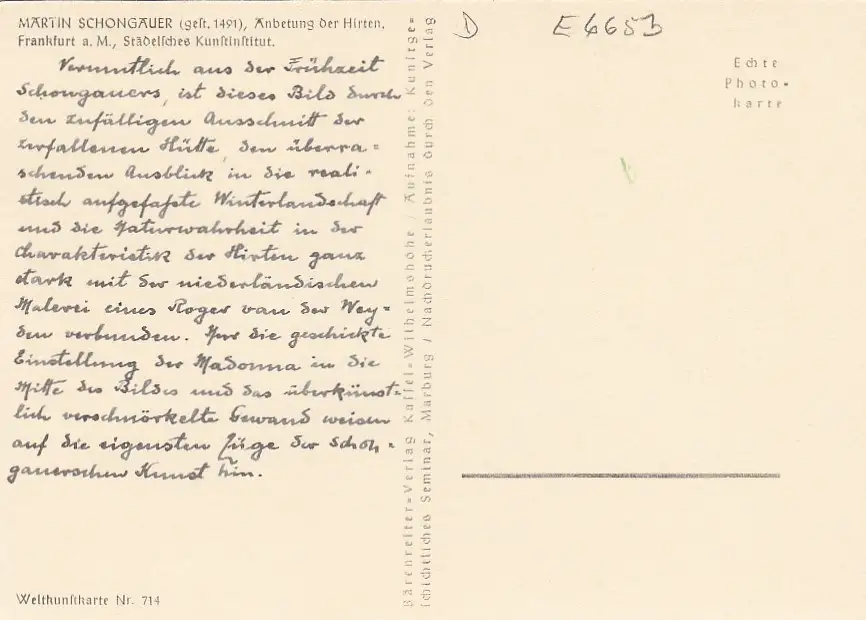 MARTIN SCHONGAUER (geſt. 1491), Anbetung der Hirten.
Frankfurt a. M., Städelſches Kunſtinſtitut.
Vermutlich aus der Frühzeit
Schongauers, ist dieses Bild durch
den zufälligen Ausschnitt der
zerfallenen Hütte, den überra=
schenden Ausblick in die reali=
stisch aufgefaßte Winterlandschaft
und die Naturwahrheit in der
Charakteristik der Hirten ganz
stark mit der niederländischen
Malerei eines Roger van der Wey=
den verbunden. Nur die geschickte
Einstellung der Madonna in die
Mitte des Bildes und das überkünst=
lich verschnörkelte Gewand weisen
auf die eigensten Züge der Schon=
gauerschen Kunst hin.
Weltkunſtkarte Nr. 714
Bärenreiter=Verlag Kaſſel=Wilhelmshöhe / Aufnahme: Kunſtge=
ſchichtliches Seminar, Marburg / Nachdruckerlaubnis durch den Verlag
D
E6653
Echte
Photo=
karte